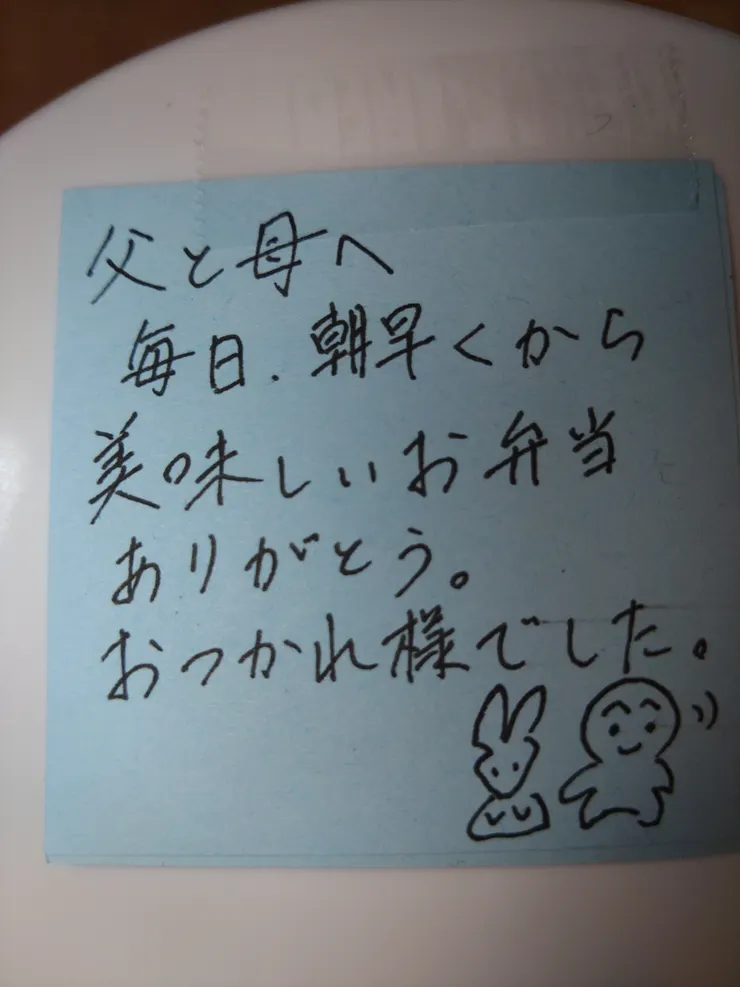 父と母へ
毎日、朝早くから
美味しいお弁当
ありがとう。
おつかれ様でした。